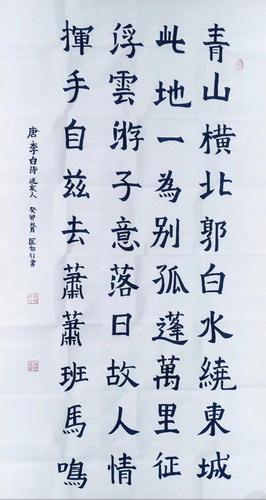 青山橫北郭白水繞東城
此地一為別孤蓬萬里征
浮雲游子意落日故人情
揮手自茲去蕭蕭班馬鳴
唐李白詩送友人 癸卯